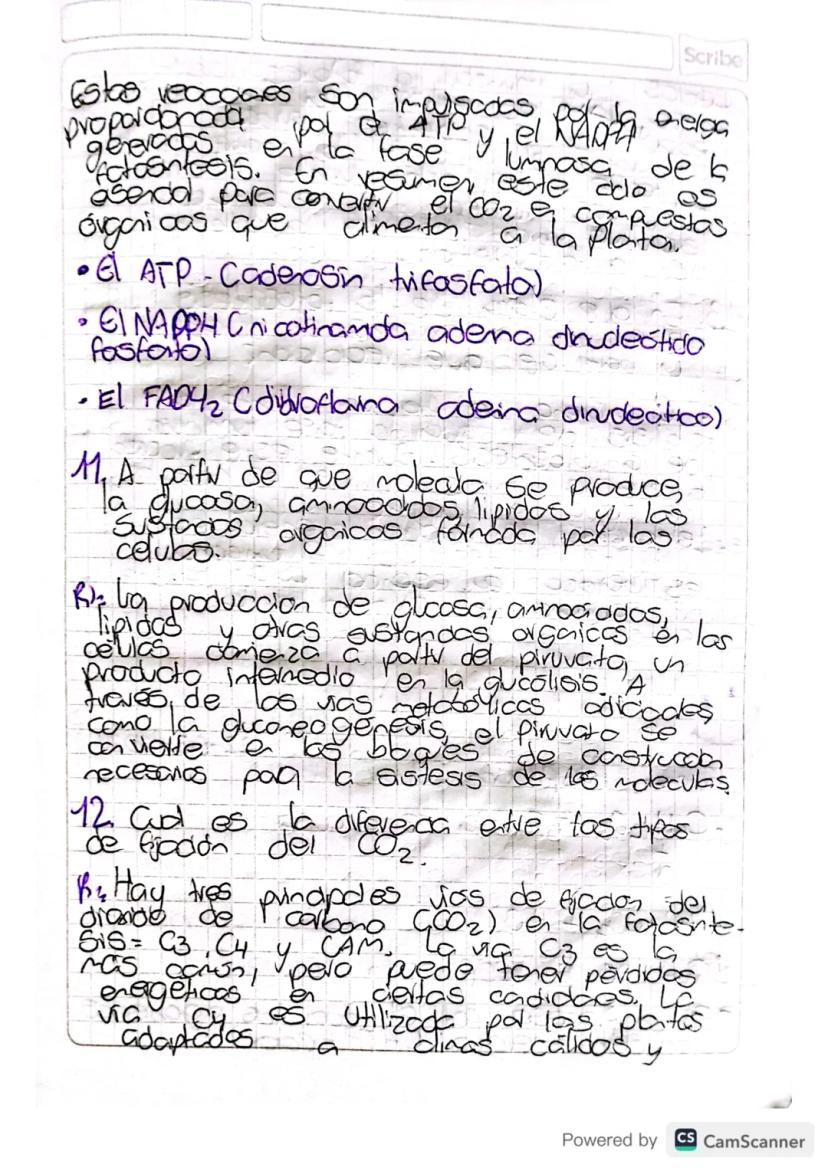 Scribe
Estas reacciones son impulsadas por la energa
proporcionada por el ATP y el NADPH
generadas en la fase luminosa de la
fotosíntesis. En resumen este ciclo es
esencial para convertir el CO2 en compuestas
órganicos que alimentan a la planta.
• El ATP - Cadenosin trifosfato)
• El NADPH (nicotinamida adenina dinucleótido
fosfato)
• El FADH2 (dihidroflavina adenina dinucleótico)
11. A partir de que molecula se produce,
la glucosa, aminoacidos, lipidos y las
sustancias organicas formada por las
celulas.
R): La produccion de glucosa, aminoacidos,
lipidos y otras sustancias organicas en las
celulas comienza a partir del piruvato, un
producto intermedio en la glucólisis. A
través, de las vias metabólicas adicionales,
como la gluconeogénesis, el piruvato se
convierte en los bloques de construccion
necesarios para la sistesis de las moleculas.
12. Cual es la diferencia entre los tipos
de fijación del CO2.
R: Hay tres principales vias de fijacion del
dioxido de carbono (CO2) en la fotosinte-
sis= C3, C4 y CAM. La via C3 es la
mas común, pero puede tener pérdidas
energéticas en ciertas condiciones. La
via C4 es utilizada por las plantas
adaptadas a climas cálidos y
Powered by CS CamScanner